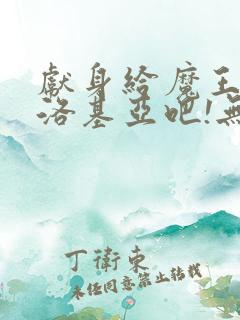 獻身給魔王
洛基亞吧!無
丁衛東
未任同意禁止轉載